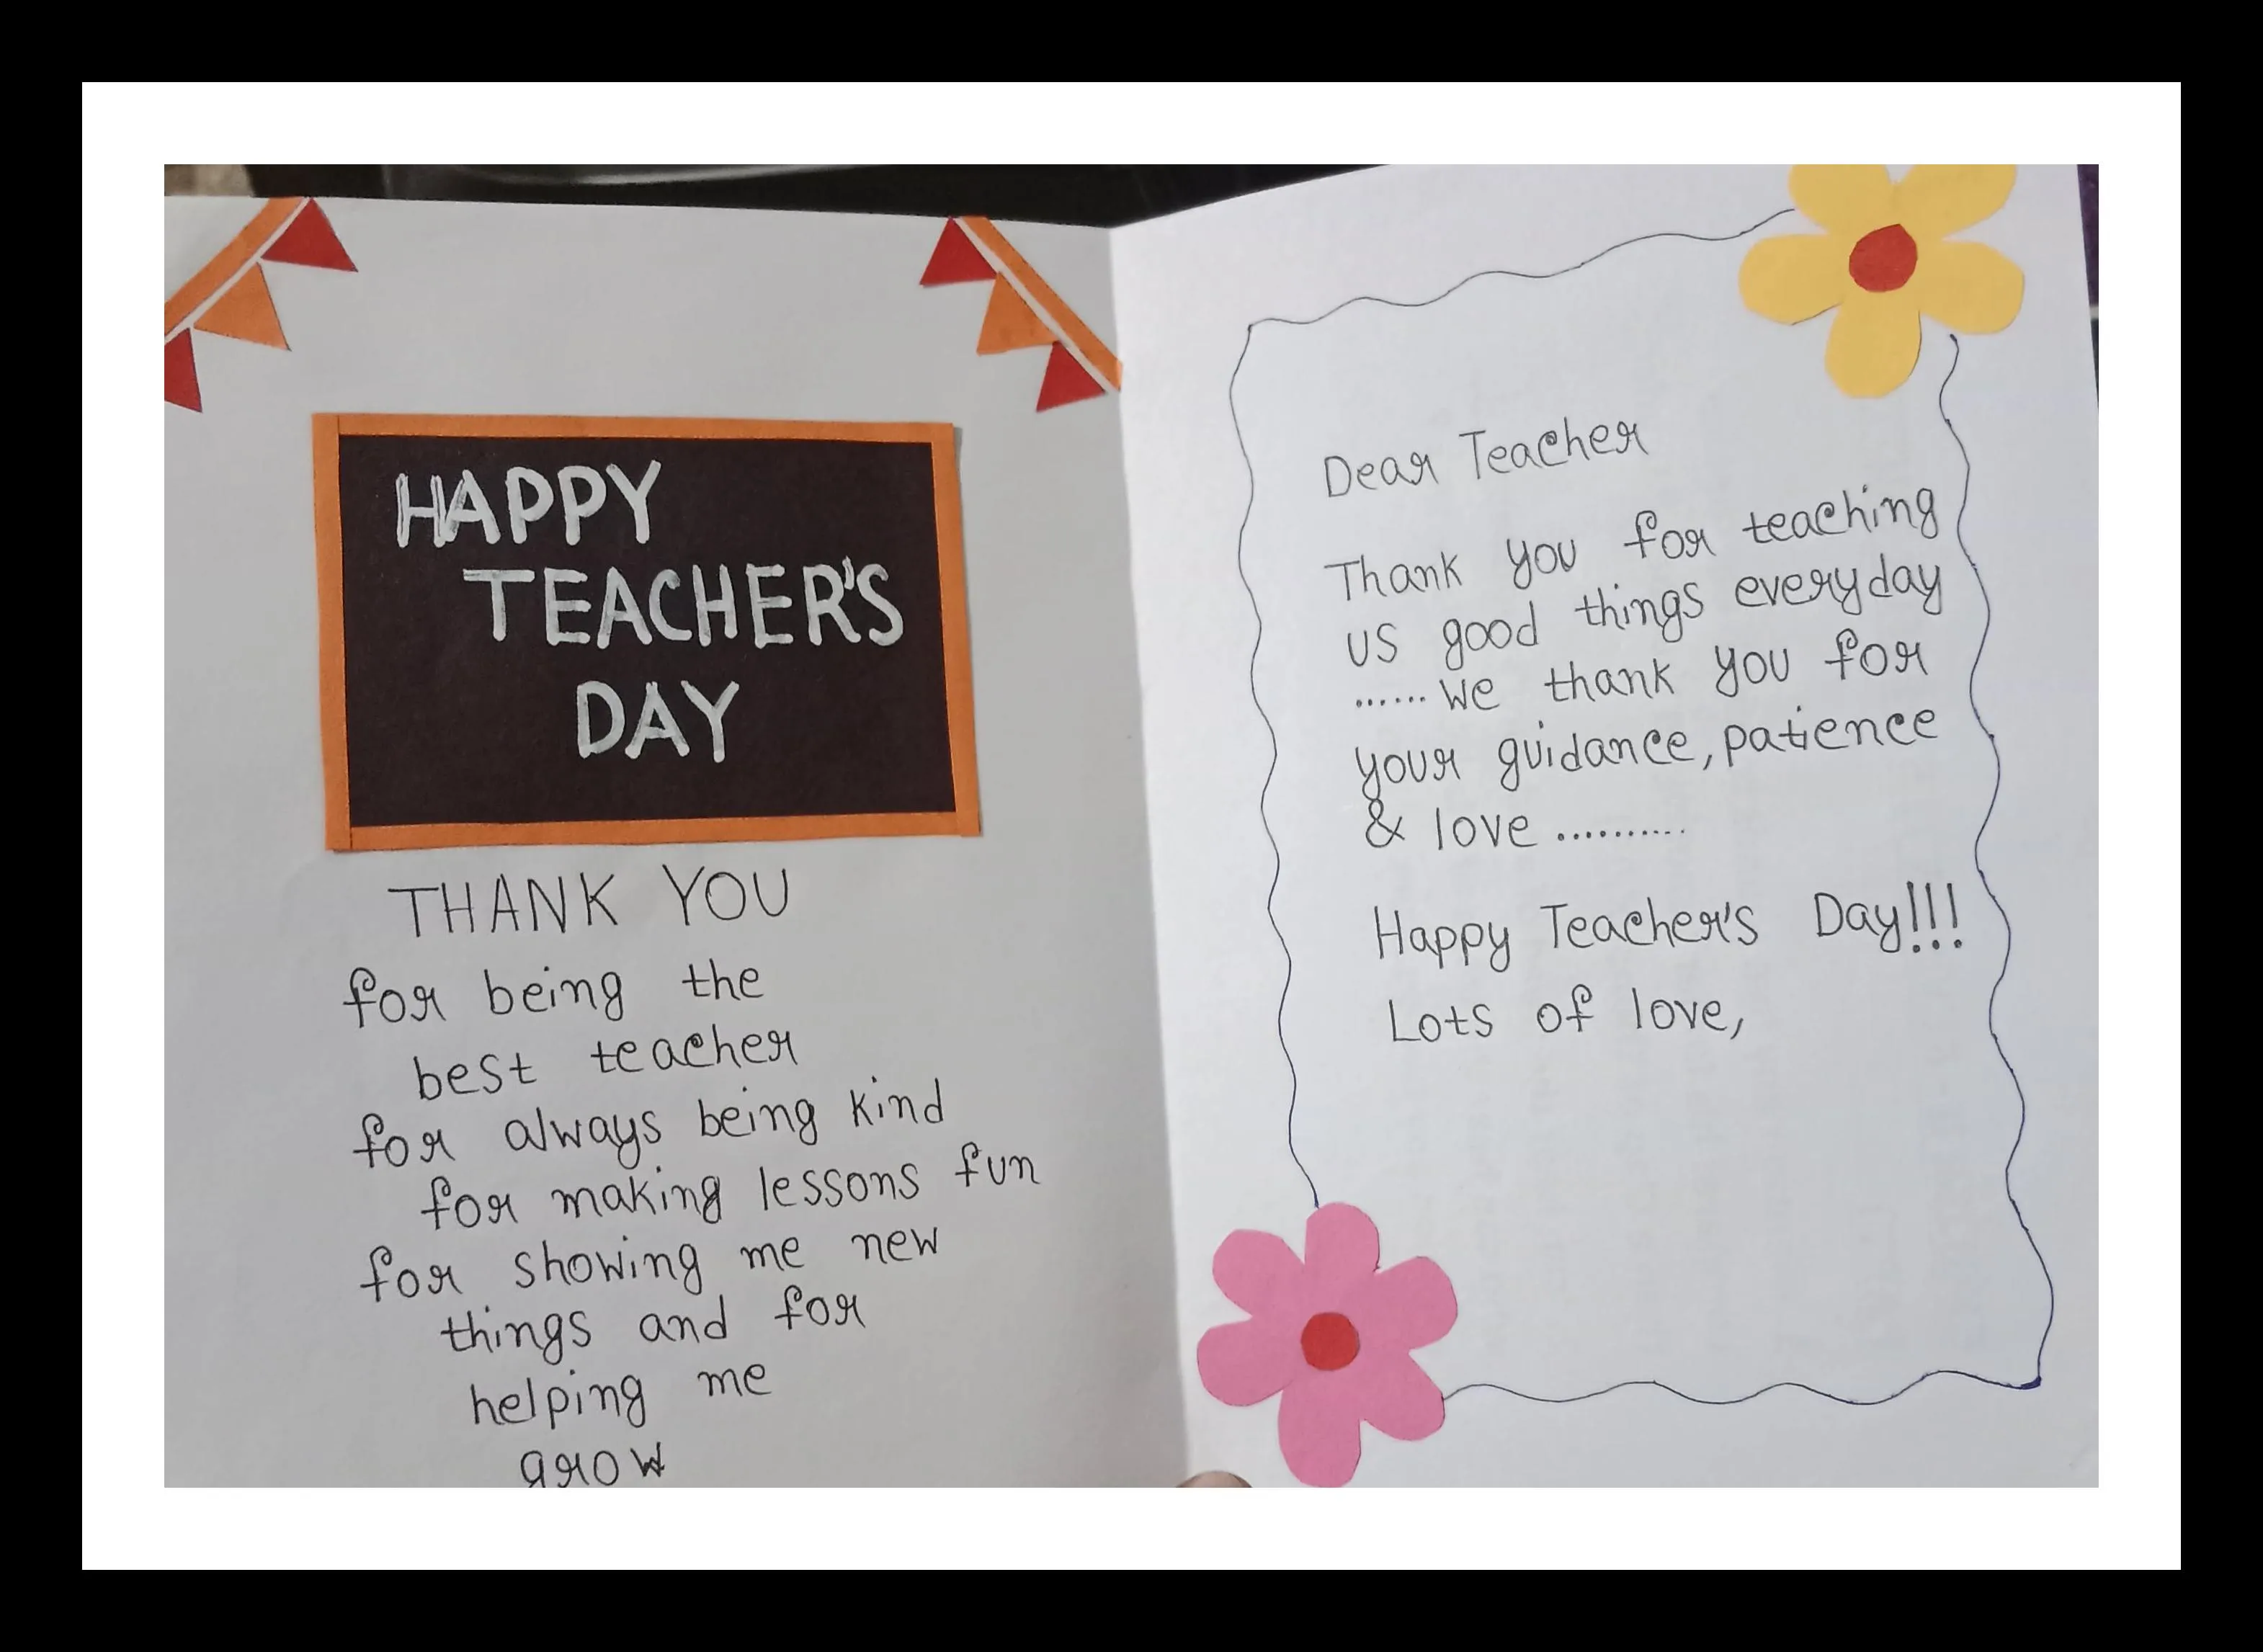 HAPPY
TEACHER'S
DAY
THANK YOU
for being the
best teacher
for always being kind
for making lessons fun
for showing me new
things and for
helping me
grow
Dear Teacher
Thank you for teaching
us good things everyday
......We thank you for
your guidance, patience
& love ..........
Happy Teacher's Day!!!
Lots of love,